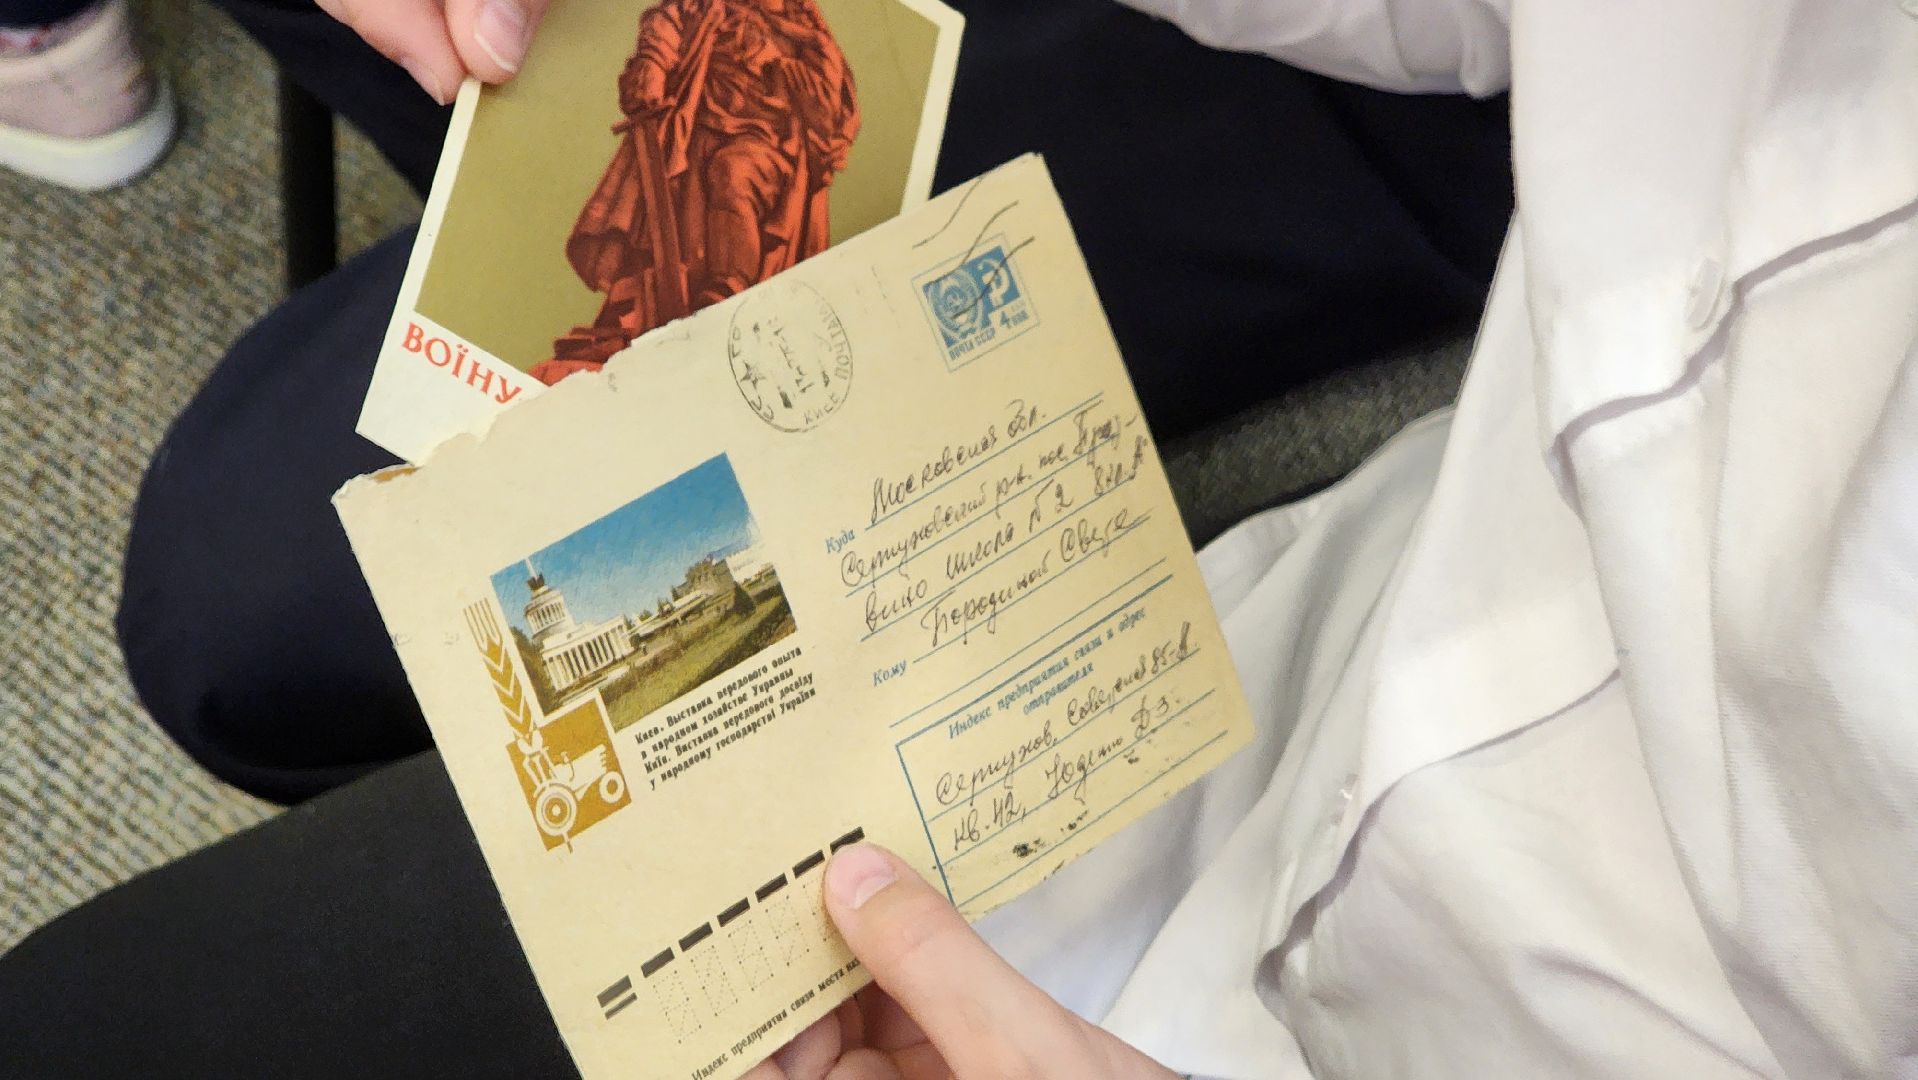 ВОЇНУ
ПОЧТА СССР 4 коп
Киев. Выставка передового опыта
в народном хозяйстве Украины
Київ. Виставка передового досвіду
у народному господарстві України
Куда Московская обл.
Серпуховский р-н. пос.
школа №2
Кому Бородиной Свете
Индекс предприятия связи и адрес
отправителя
Серпухов, Советская 85-А.
кв. 42, Юденко
Индекс предприятия связи места